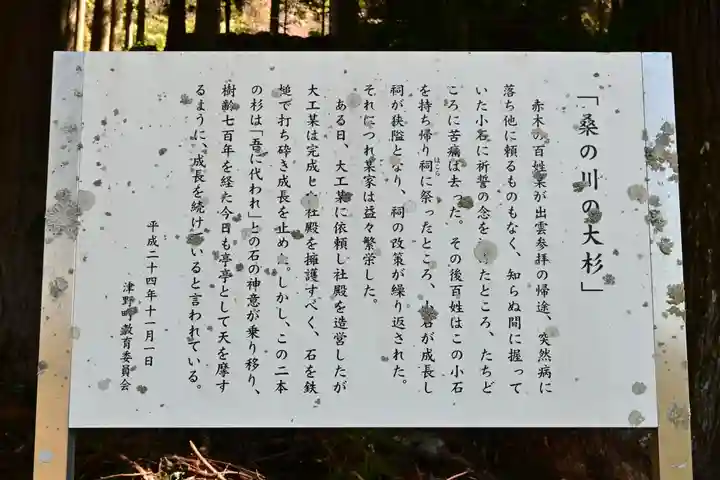 「桑の川の大杉」
赤木の百姓某が出雲参拝の帰途、突然病に
落ち他に頼るものもなく、知らぬ間に握って
いた小石に祈誓の念をたところ、たちど
ころに苦痛は去った。その後百姓はこの小石
を持ち帰り祠に祭ったところ、小石が成長し
ほこら
祠が狭隘となり、祠の改築が繰り返された。
それにつれ某家は益々繁栄した。
ある日、大工某に依頼し社殿を造営したが
大工某は完成せ社殿を擁護すべく、石を鉄
槌で打ち砕き成長を止めた。しかし、この二本
の杉は「吾に代われ」との石の神意が乗り移り、
樹齢七百年を経た今日も亭亭として天を摩す
るように、成長を続けていると言われている。
平成二十四年十一月一日
津野町教育委員会